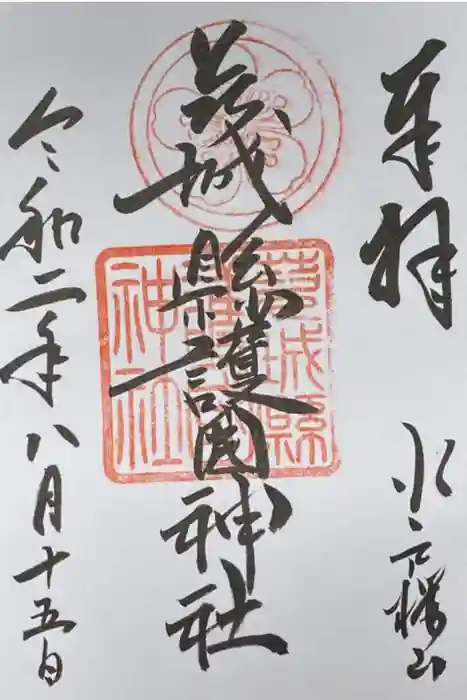 奉拝
水戸桜山
茨城縣護國神社
茨城縣護國神社
令和二年八月十五日